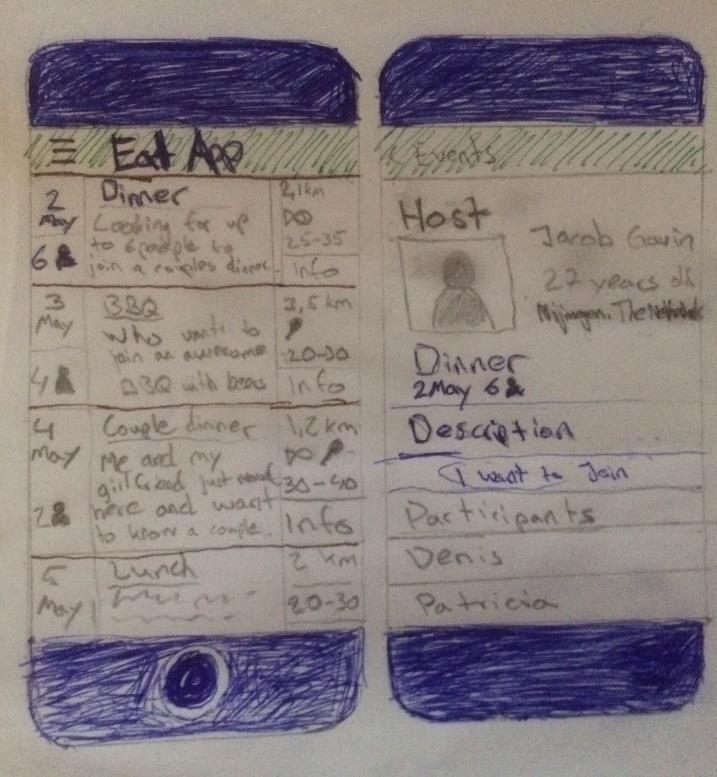 Eat App
2
May
6
Dinner
Looking for up
to 6 people to
join a couples dinner.
2,1km
25-35
Info
3
May
4
BBQ
Who wants to
join an awesome
BBQ with bears
3,5 km
20-30
Info
4
May
2
Couple dinner
Me and my
just moved
here and want
to know a couple.
1,2 km
30-40
Info
5
May
Lunch
2 km
20-30
< Events
Host
Jacob Gavin
27 years old
Nijmegen, The Netherlands
Dinner
2 May 6
Description
I want to Join
Participants
Denis
Patricia